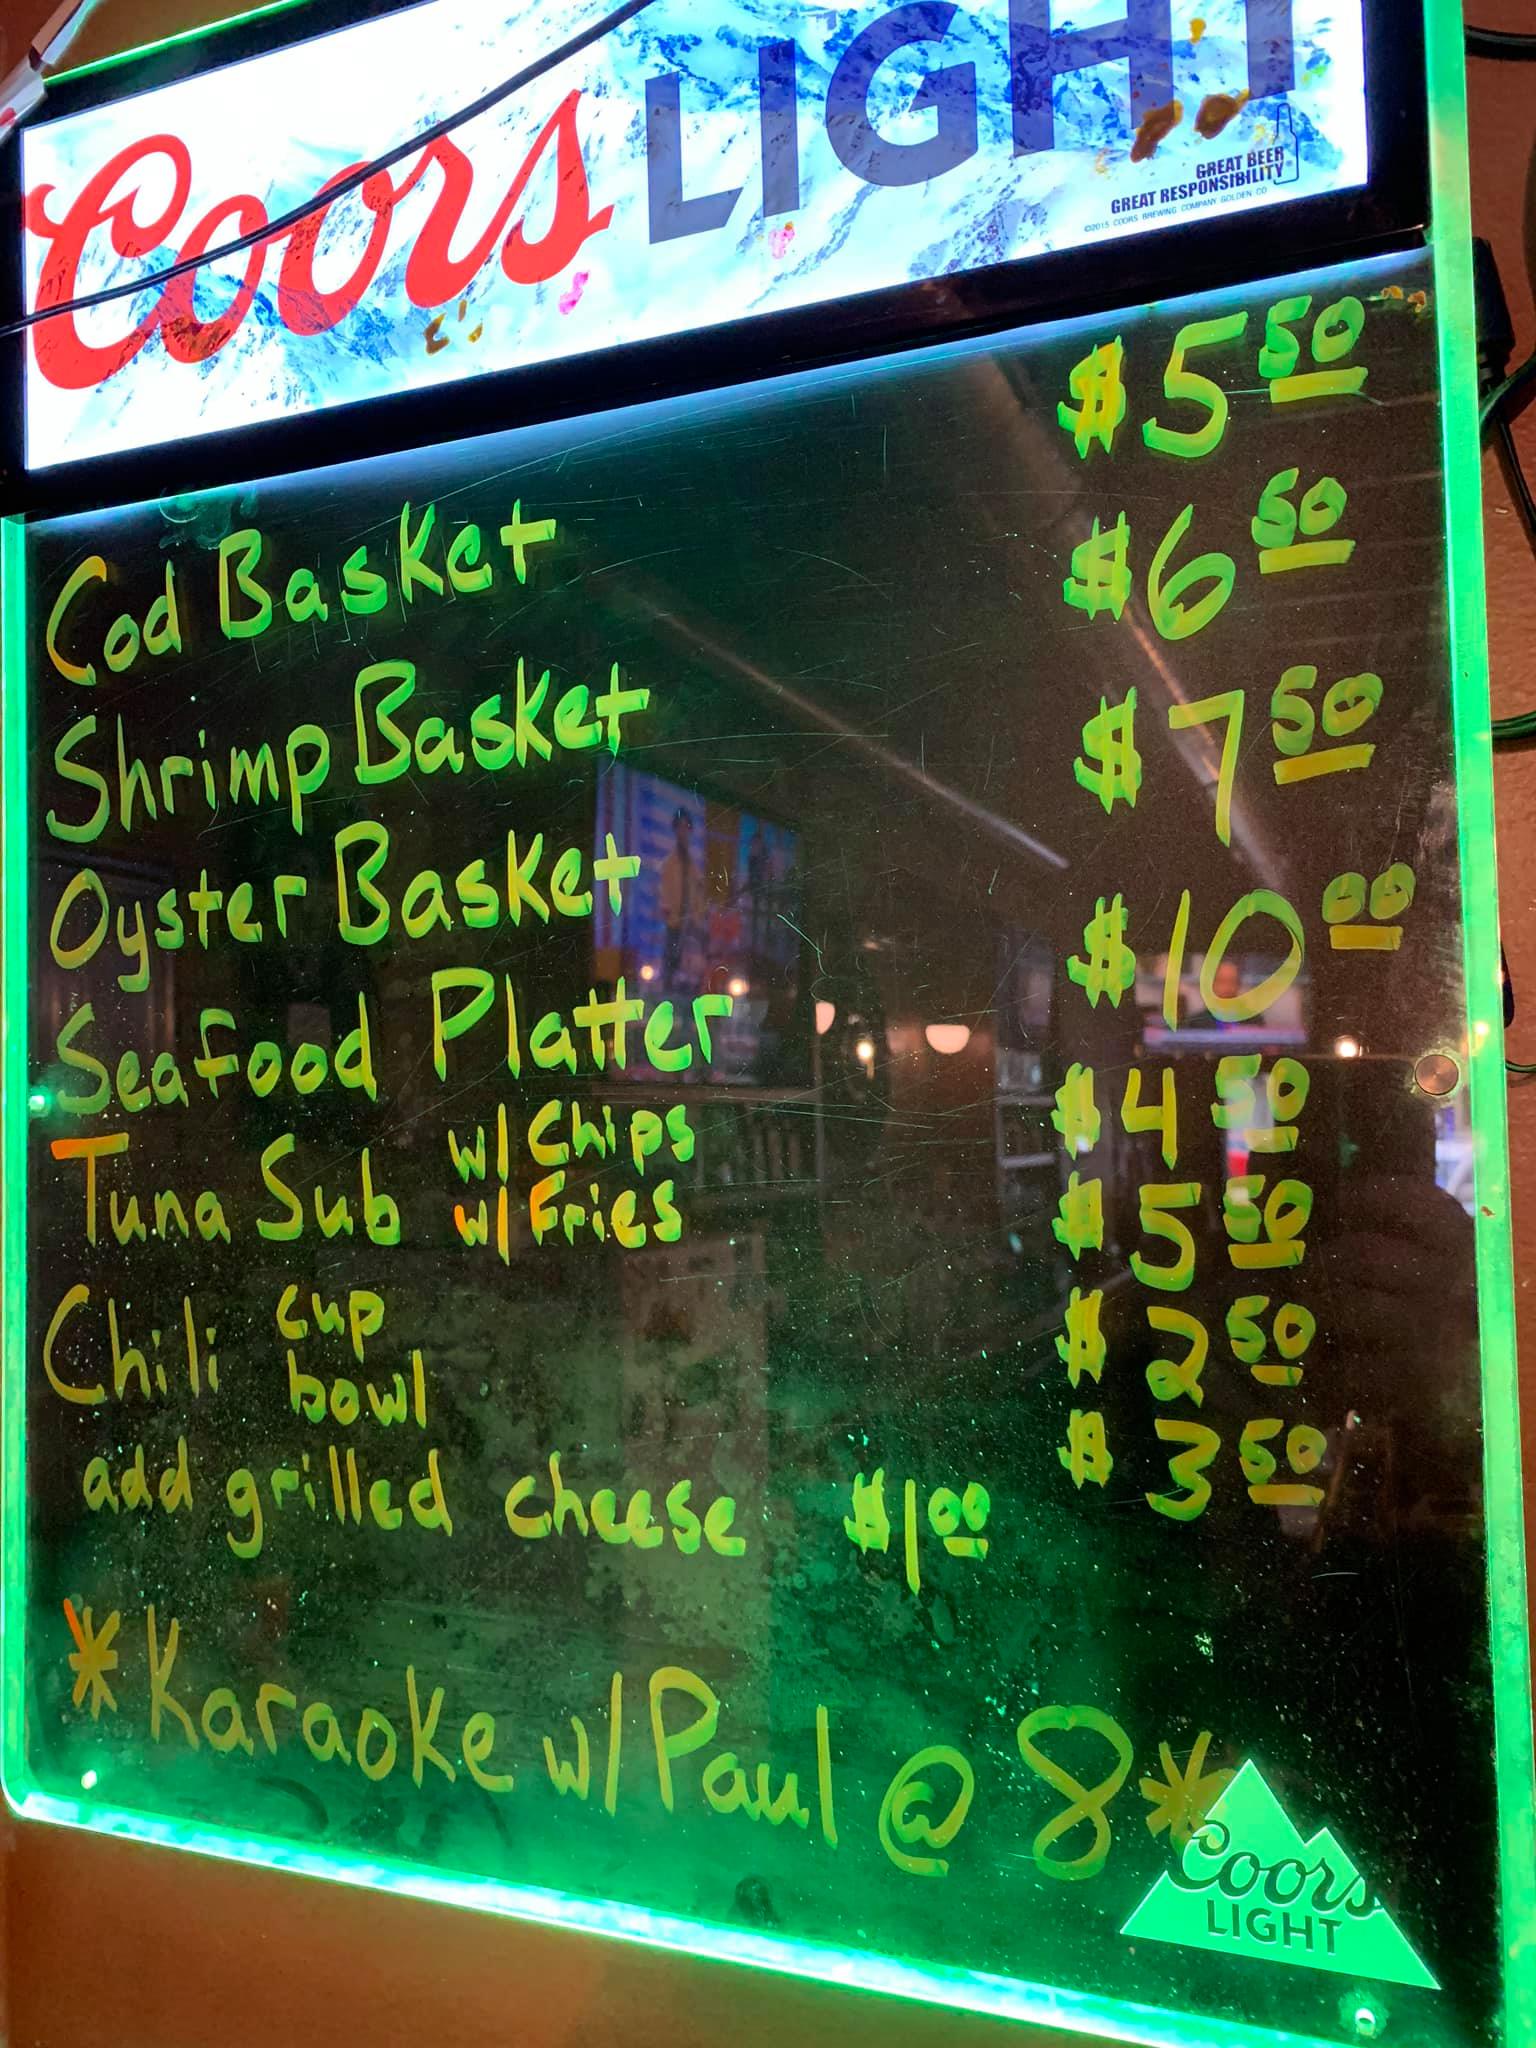 Coors LIGHT
GREAT BEER
GREAT RESPONSIBILITY®
©2015 COORS BREWING COMPANY GOLDEN, CO
Cod Basket $5 50
Shrimp Basket $6 50
Oyster Basket $7 50
Seafood Platter $10 00
Tuna Sub w/ Chips $4 50
w/ Fries $5 50
Chili cup $2 50
bowl $3 50
add grilled cheese $1 00
*Karaoke w/ Paul @ 8*
Coors
LIGHT